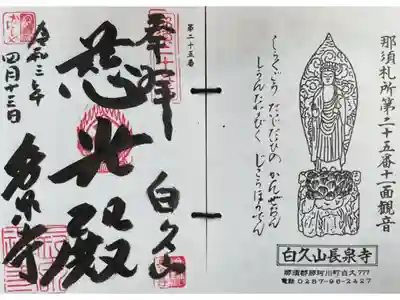 那須札所第二十五番十一面観音
だいじだいひの かんぜおん
じこうほうでん
白久山長泉寺
那須郡那珂川町白久777
電話 0287-96-2427
第二十五番
奉拝
白久山
慈光殿
令和三年
四月十三日
長泉寺